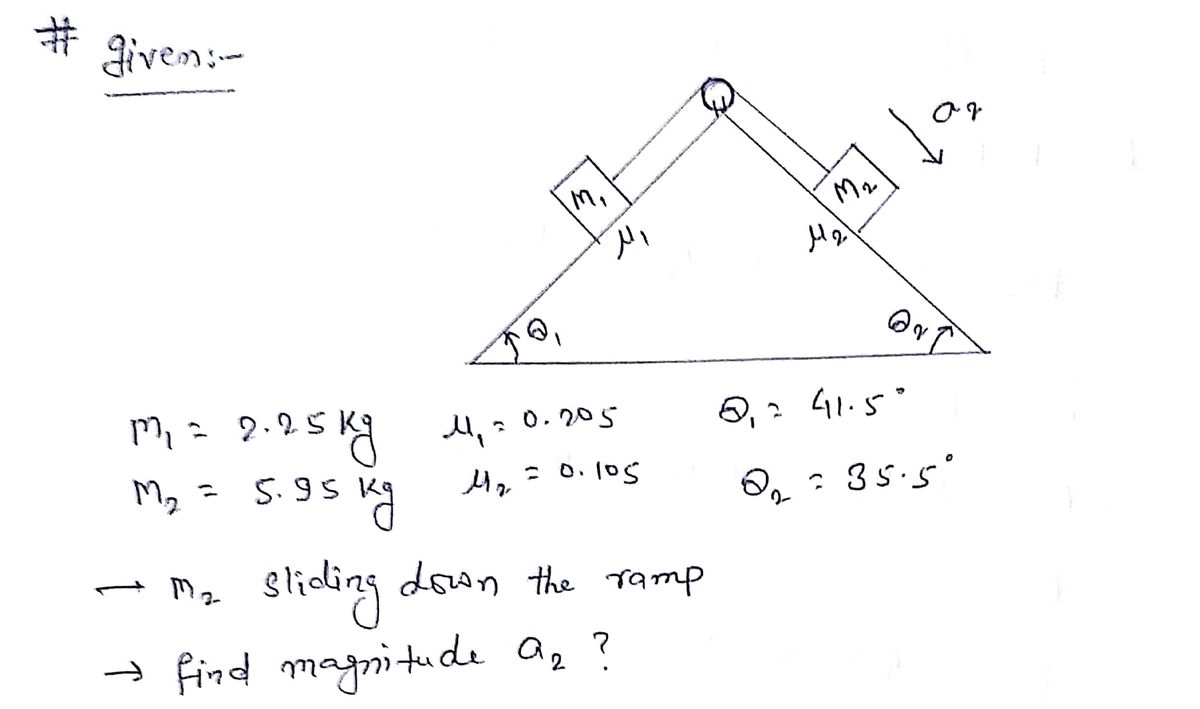 # given:-
a2
m1
m2
μ1
μ2
θ1
θ2
m1 = 2.25 kg μ1 = 0.205 θ1 = 41.5°
m2 = 5.95 kg μ2 = 0.105 θ2 = 35.5°
→ m2 sliding down the ramp
→ find magnitude a2 ?